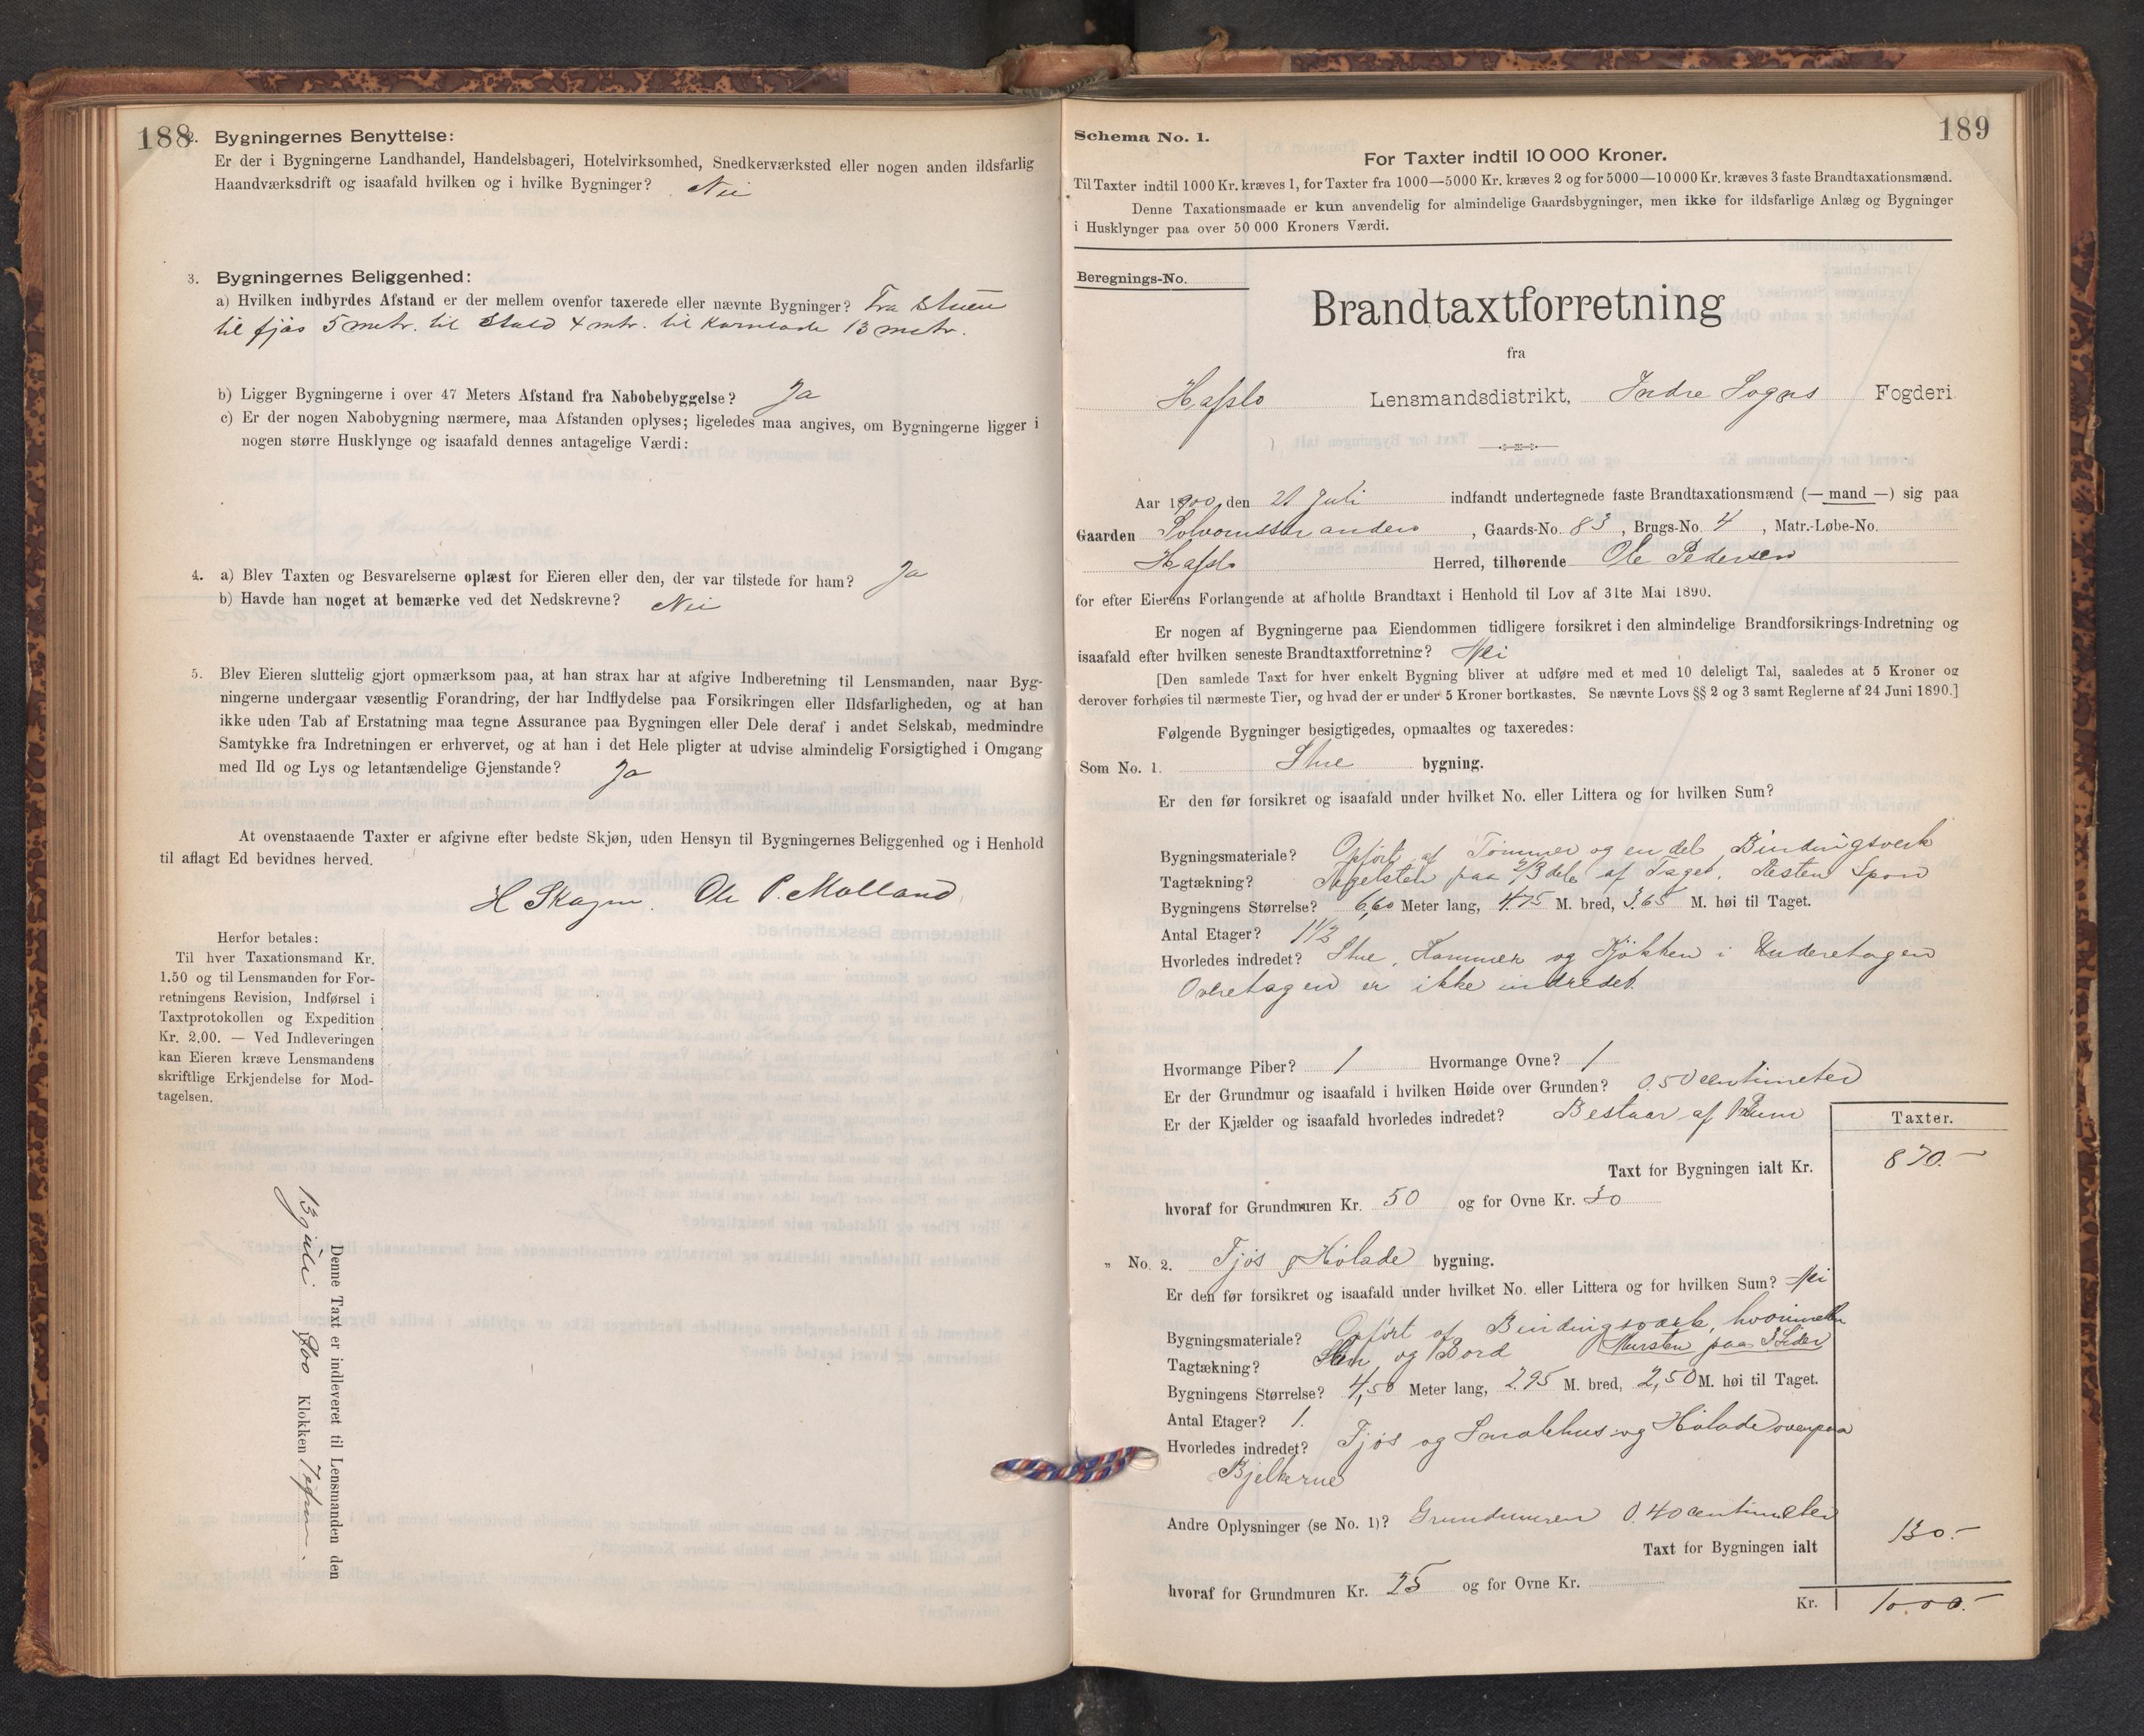 188
2. Bygningernes Benyttelse:
Er der i Bygningerne Landhandel, Handelsbageri, Hotelvirksomhed, Snedkerværksted eller nogen anden ildsfarlig
Haandværksdrift og isaafald hvilken og i hvilke Bygninger? Nei
3. Bygningernes Beliggenhed:
a) Hvilken indbyrdes Afstand er der mellem ovenfor taxerede eller nævnte Bygninger? Fra Stuen
til fjøs 5 metr. til Stald 4 mtr. til Kornlade 13 metr.
b) Ligger Bygningerne i over 47 Meters Afstand fra Nabobebyggelse? Ja
c) Er der nogen Nabobygning nærmere, maa Afstanden oplyses; ligeledes maa angives, om Bygningerne ligger i
nogen større Husklynge og isaafald dennes antagelige Værdi:
4. a) Blev Taxten og Besvarelserne oplæst for Eieren eller den, der var tilstede for ham? Ja
b) Havde han noget at bemærke ved det Nedskrevne? Nei
5. Blev Eieren sluttelig gjort opmærksom paa, at han strax har at afgive Indberetning til Lensmanden, naar Byg-
ningerne undergaar væsentlig Forandring, der har Indflydelse paa Forsikringen eller Ildsfarligheden, og at han
ikke uden Tab af Erstatning maa tegne Assurance paa Bygningen eller Dele deraf i andet Selskab, medmindre
Samtykke fra Indretningen er erhvervet, og at han i det Hele pligter at udvise almindelig Forsigtighed i Omgang
med Ild og Lys og letantændelige Gjenstande? Ja
At ovenstaaende Taxter er afgivne efter bedste Skjøn, uden Hensyn til Bygningernes Beliggenhed og i Henhold
til aflagt Ed bevidnes herved.
H Skagen. Ole P. Molland
Herfor betales:
Til hver Taxationsmand Kr.
1.50 og til Lensmanden for For-
retningens Revision, Indførsel i
Taxtprotokollen og Expedition
Kr. 2.00. — Ved Indleveringen
kan Eieren kræve Lensmandens
skriftlige Erkjendelse for Mod-
tagelsen.
Denne Taxt er indleveret til Lensmanden den
13 juli 1900 Klokken 7 efm.
189
Schema No. 1.
For Taxter indtil 10 000 Kroner.
Til Taxter indtil 1000 Kr. kræves 1, for Taxter fra 1000—5000 Kr. kræves 2 og for 5000—10 000 Kr. kræves 3 faste Brandtaxationsmænd.
Denne Taxationsmaade er kun anvendelig for almindelige Gaardsbygninger, men ikke for ildsfarlige Anlæg og Bygninger
i Husklynger paa over 50 000 Kroners Værdi.
Beregnings-No.
Brandtaxtforretning
fra
Hafslo Lensmandsdistrikt, Indre Sogns Fogderi
Aar 1900, den 21 Juli indfandt undertegnede faste Brandtaxationsmænd (— mand —) sig paa
Gaarden Solvornsstranden, Gaards-No. 83, Brugs-No. 4, Matr.-Løbe-No.
Hafslo Herred, tilhørende Ole Pedersen
for efter Eierens Forlangende at afholde Brandtaxt i Henhold til Lov af 31te Mai 1890.
Er nogen af Bygningerne paa Eiendommen tidligere forsikret i den almindelige Brandforsikrings-Indretning og
isaafald efter hvilken seneste Brandtaxtforretning? Nei
[Den samlede Taxt for hver enkelt Bygning bliver at udføre med et med 10 deleligt Tal, saaledes at 5 Kroner og
derover forhøies til nærmeste Tier, og hvad der er under 5 Kroner bortkastes. Se nævnte Lovs §§ 2 og 3 samt Reglerne af 24 Juni 1890.]
Følgende Bygninger besigtigedes, opmaaltes og taxeredes:
Som No. 1. Stue bygning.
Er den før forsikret og isaafald under hvilket No. eller Littera og for hvilken Sum?
Bygningsmateriale? Opført af Tømmer og en del Bindingsverk
Tagtækning? Tagelsten paa 2/3 dele af Taget. Resten Spon
Bygningens Størrelse? 6,60 Meter lang, 4.75 M. bred, 3.65 M. høi til Taget.
Antal Etager? 1 1/2
Hvorledes indredet? Stue, Kammer og Kjøkken i Underetagen
Overetagen er ikke indredet
Hvormange Piber? 1 Hvormange Ovne? 1
Er der Grundmur og isaafald i hvilken Høide over Grunden? 0.50 centimeter
Er der Kjælder og isaafald hvorledes indredet? Bestaar af 1 Rum
Taxter.
Taxt for Bygningen ialt Kr. 870.—
hvoraf for Grundmuren Kr. 50 og for Ovne Kr. 30
" No. 2. Fjøs & Hølade bygning.
Er den før forsikret og isaafald under hvilket No. eller Littera og for hvilken Sum? Nei
Bygningsmateriale? Opført af Bindingsværk, hvorimellem
Mursten paa 3 Sider
Tagtækning? Sten og Bord
Bygningens Størrelse? 4,50 Meter lang, 2.95 M. bred, 2,50 M. høi til Taget.
Antal Etager? 1.
Hvorledes indredet? Fjøs og Smalehus og Hølade ovenpaa
Bjelkerne
Andre Oplysninger (se No. 1)? Grundmuren 0.40 centimeter
Taxt for Bygningen ialt 130.—
hvoraf for Grundmuren Kr. 25 og for Ovne Kr.
Kr. 1000.—